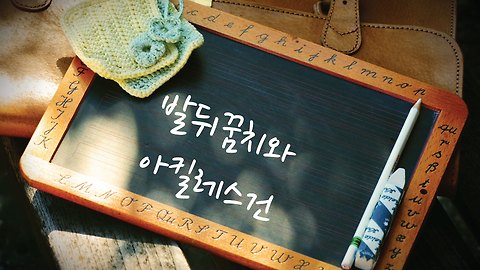 발뒤꿈치와
아킬레스건
c d e f g h i j k l m n o p
q u r s t u v w x y z
F G H I J K
L M N O P Qu R S T U V W X Y Z